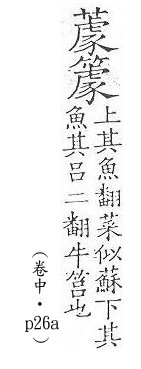 䕮𥴧上其魚翻菜似蘇下其
魚其呂二翻牛筥也
（卷中・p26a）